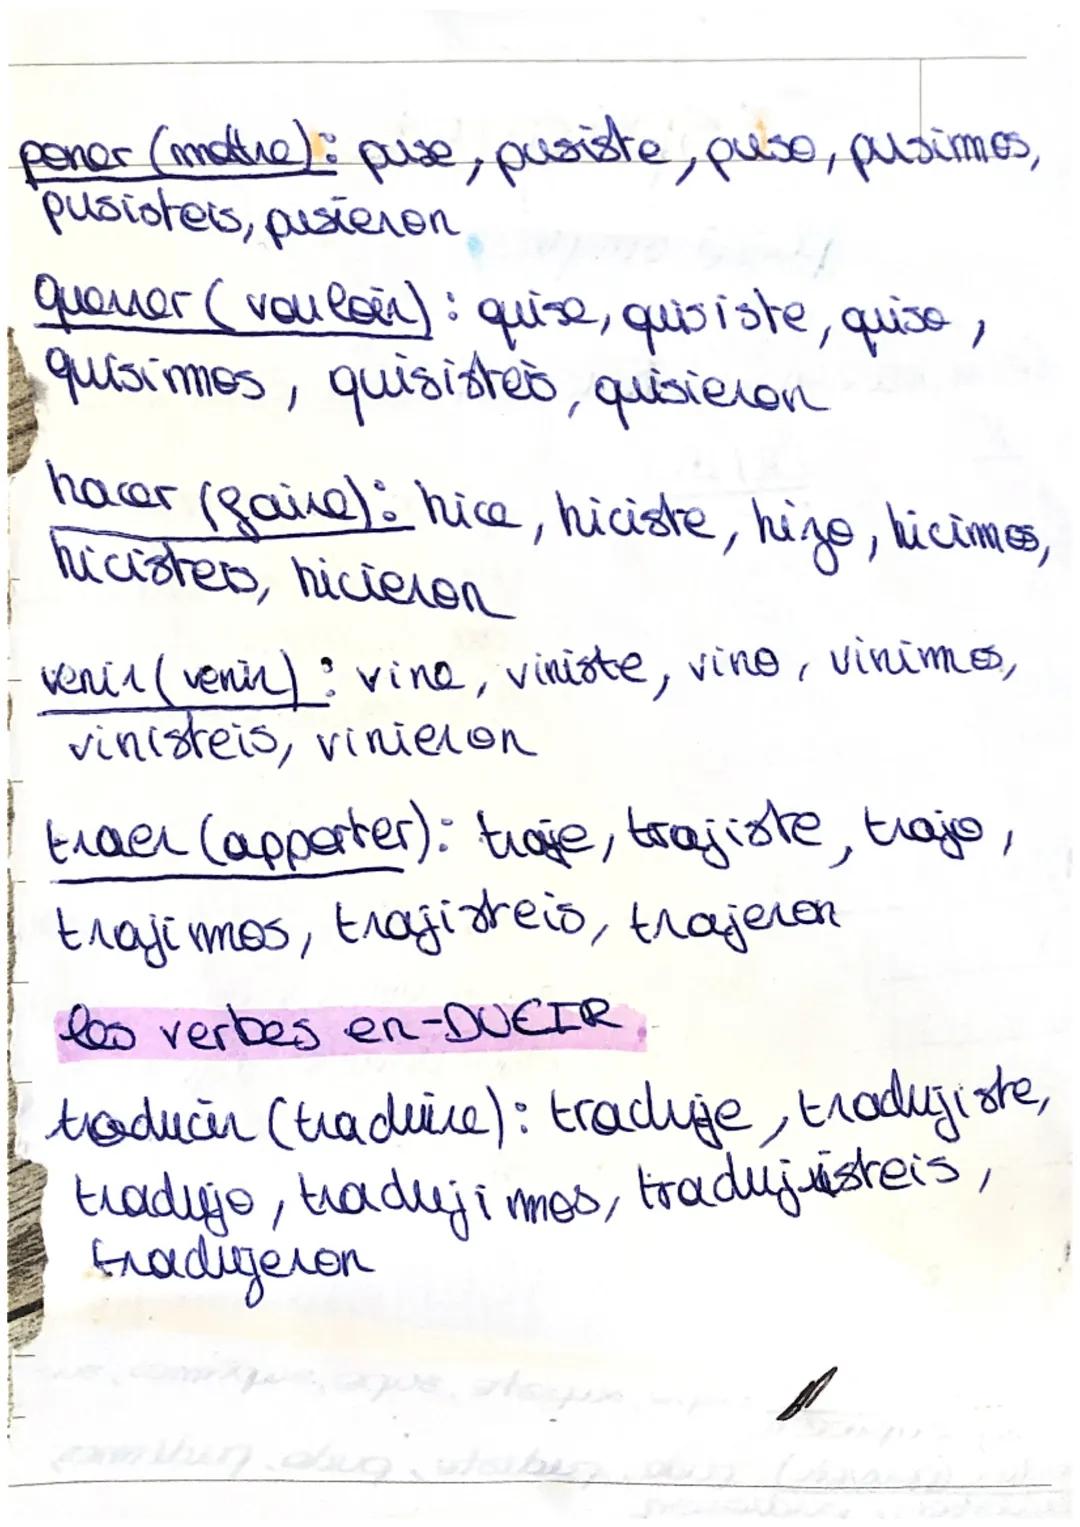 poner (mettre): puse, pusiste, puso, pusimos,
pusisteis, pusieron
querrer (vouloir): quise, quisiste, quiso,
quisimos, quisisteis, quisieron
hacer (faire): hice, hiciste, hizo, hicimos,
hicisteis, hicieron
venir (venir): vine, viniste, vino, vinimos,
vinisteis, vinieron
traer (apporter): traje, trajiste, trajo,
trajimos, trajisteis, trajeron
les verbes en -DUCIR
traducir (traduire): traduje, tradujiste,
tradujo, tradujimos, tradujisteis,
tradujeron